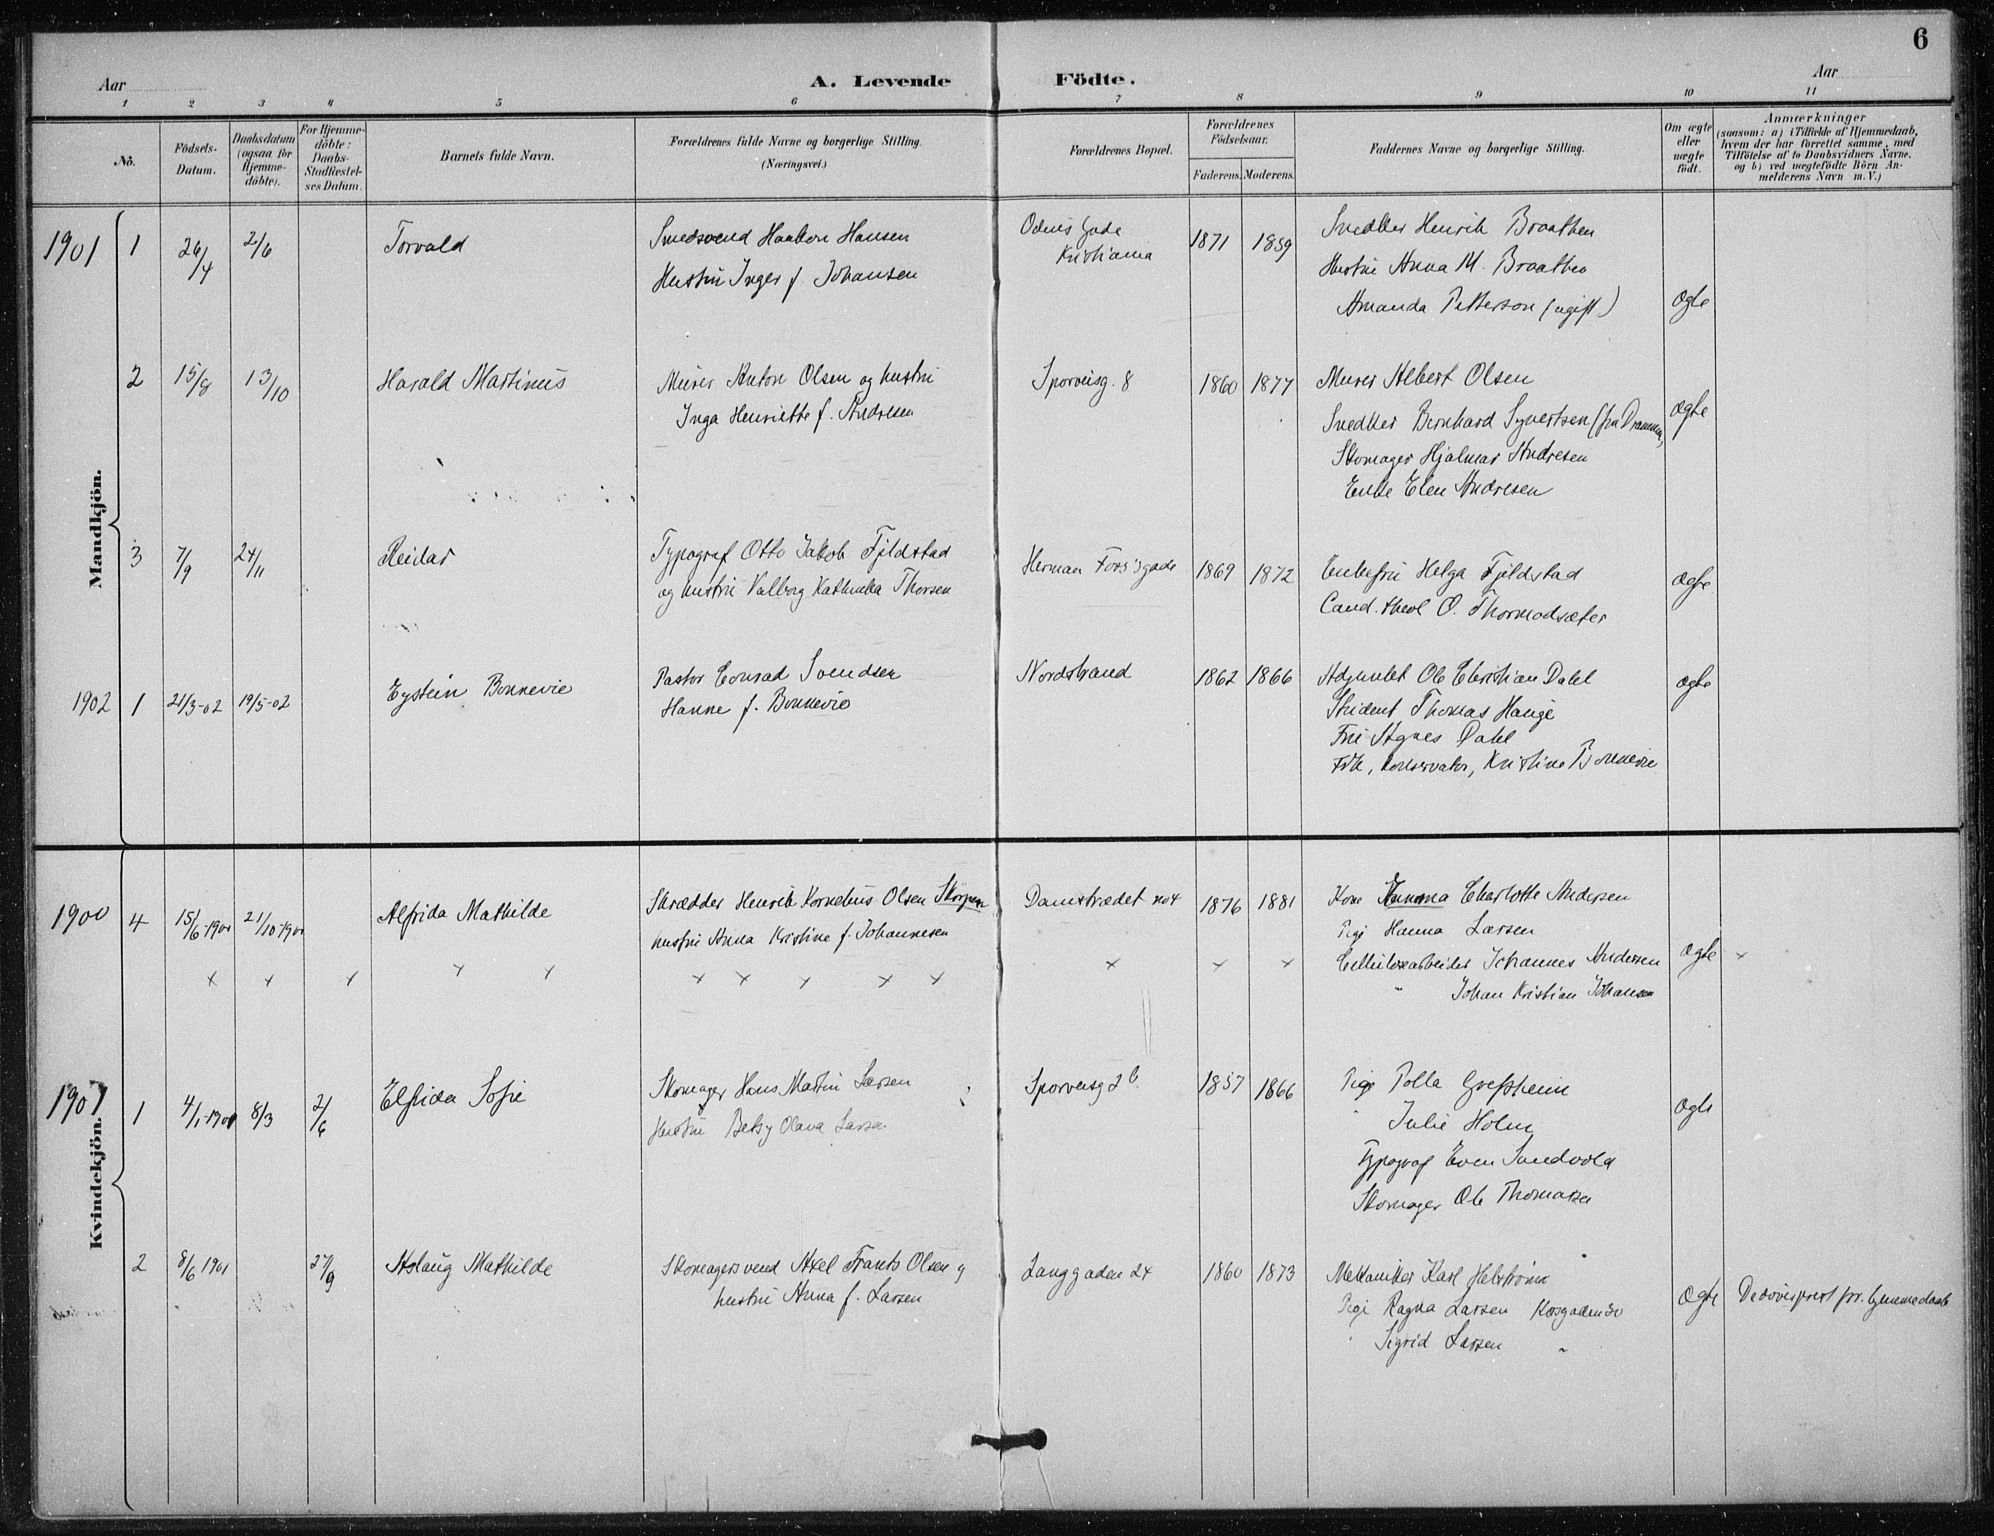 6
Aar
A. Levende Födte.
Aar
1 2 3 4 5 6 7 8 9 10 11
No.
Födsels-Datum.
Daabsdatum (ogsaa for Hjemme-döbte).
For Hjemme-döbte: Daabs-Stadfæstel-ses Datum.
Barnets fulde Navn.
Forældrenes fulde Navne og borgerlige Stilling.
(Næringsvei.)
Forældrenes Bopæl.
Forældrenes Födselsaar.
Faderens. Moderens.
Faddernes Navne og borgerlige Stilling.
Om ægte eller uægte födt.
Anmærkninger
(saasom: a) i Tilfælde af Hjemmedaab,
hvem der har forrettet samme, med
Tilföielse af to Daabsvidners Navne.
og b) ved uægtefödte Börn An-
melderens Navn m. V.)
Mandkjön.
1901 1 26/4 2/6 Torvald
Smedsvend Haakon Hansen
Hustru Inger f. Johansen
Odins Gade
Kristiania
1871 1859
Snedker Henrik Braathen
Hustru Anna M. Braathen
Amanda Petterson (ugift)
Ægte
2 15/8 13/10 Harald Martinus
Murer Anton Olsen og hustru
Inga Henriette f. Andresen
Sporveisg. 8
1860 1877
Murer Albert Olsen
Snedker Bernhard Syvertsen (fra Drammen)
Skomager Hjalmar Andresen
Enke Elen Andresen
Ægte
3 7/9 24/11 Reidar
Typograf Otto Jakob Fjeldstad
og hustru Valborg Kathinka Thorsen
Herman Foss's gade
1869 1872
Enkefru Helga Fjeldstad
Cand. theol O. Thormodsæter
Ægte
1902 1 21/3-02 19/5-02 Eystein Bonnevie
Pastor Conrad Svendsen
Hanne f. Bonnevie
Nordstrand
1862 1866
Adjunkt Ole Christian Dahl
Student Thomas Hauge
Fru Agnes Dahl
Frk, konservator, Kristine Bonnevie
ægte
Kvindekjön.
1900 4 15/6-1900 21/10-1900 Alfrida Mathilde
Skrædder Henrik Kornelius Olsen Skorpen
hustru Anna Kristine f. Johannesen
Damstrædet no 4
1876 1881
Kone Emma Charlotte Andersen
Pige Hanna Larsen
Cellulosearbeider Johannes Andersen
" Johan Kristian Johansen
Ægte
1901 1 4/1-1901 8/3 2/6 Elfrida Sofie
Skomager Hans Martin Larsen
Hustru Betsy Olava Larsen
Sporveisg 2 b.
1857 1866
Pige Polla Grefsheim
" Julie Holm
Typograf Even Sandvold
Skomager Ole Thomasen
Ægte
2 8/6 1901 27/9 Aslaug Mathilde
Skomagersvend Axel Frants Olsen og
hustru Anna f. Larsen
Langgaden 24
1860 1873
Mekaniker Karl Helstrøm
Pige Ragna Larsen Korsgaden 30
" Sigrid Larsen "
Ægte
Dødovesprest for. hjemmedaab